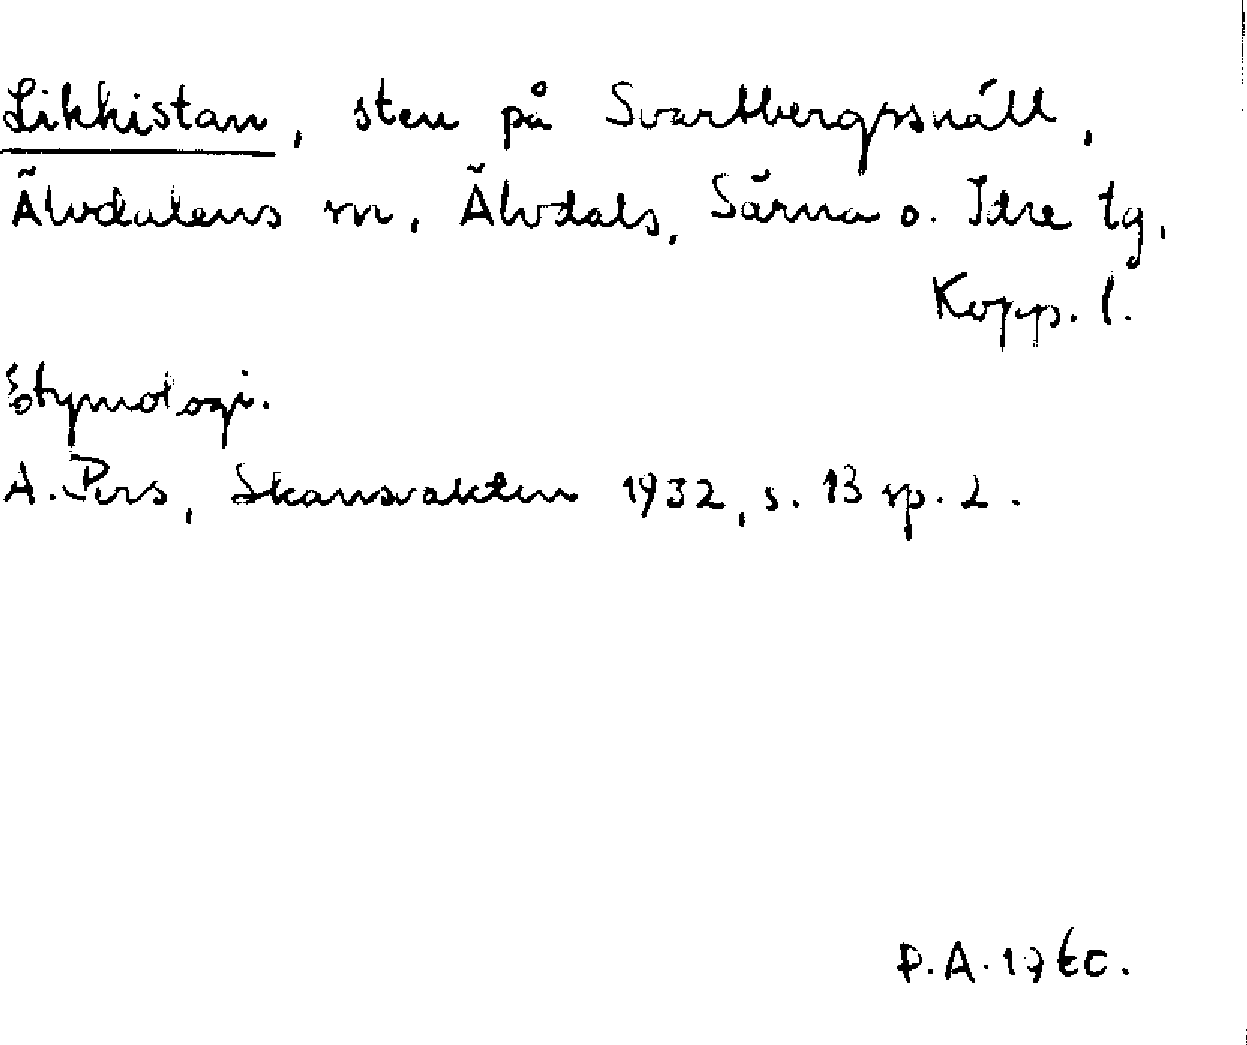 Likkistan, sten på Svartbergssnäll,
Älvdalens sn, Älvdals, Särna o. Idre tg,
Kopp. l.
Etymologi.
A. Pers, Skansvakten 1932, s. 13 sp. 2.
P.A. 1960.